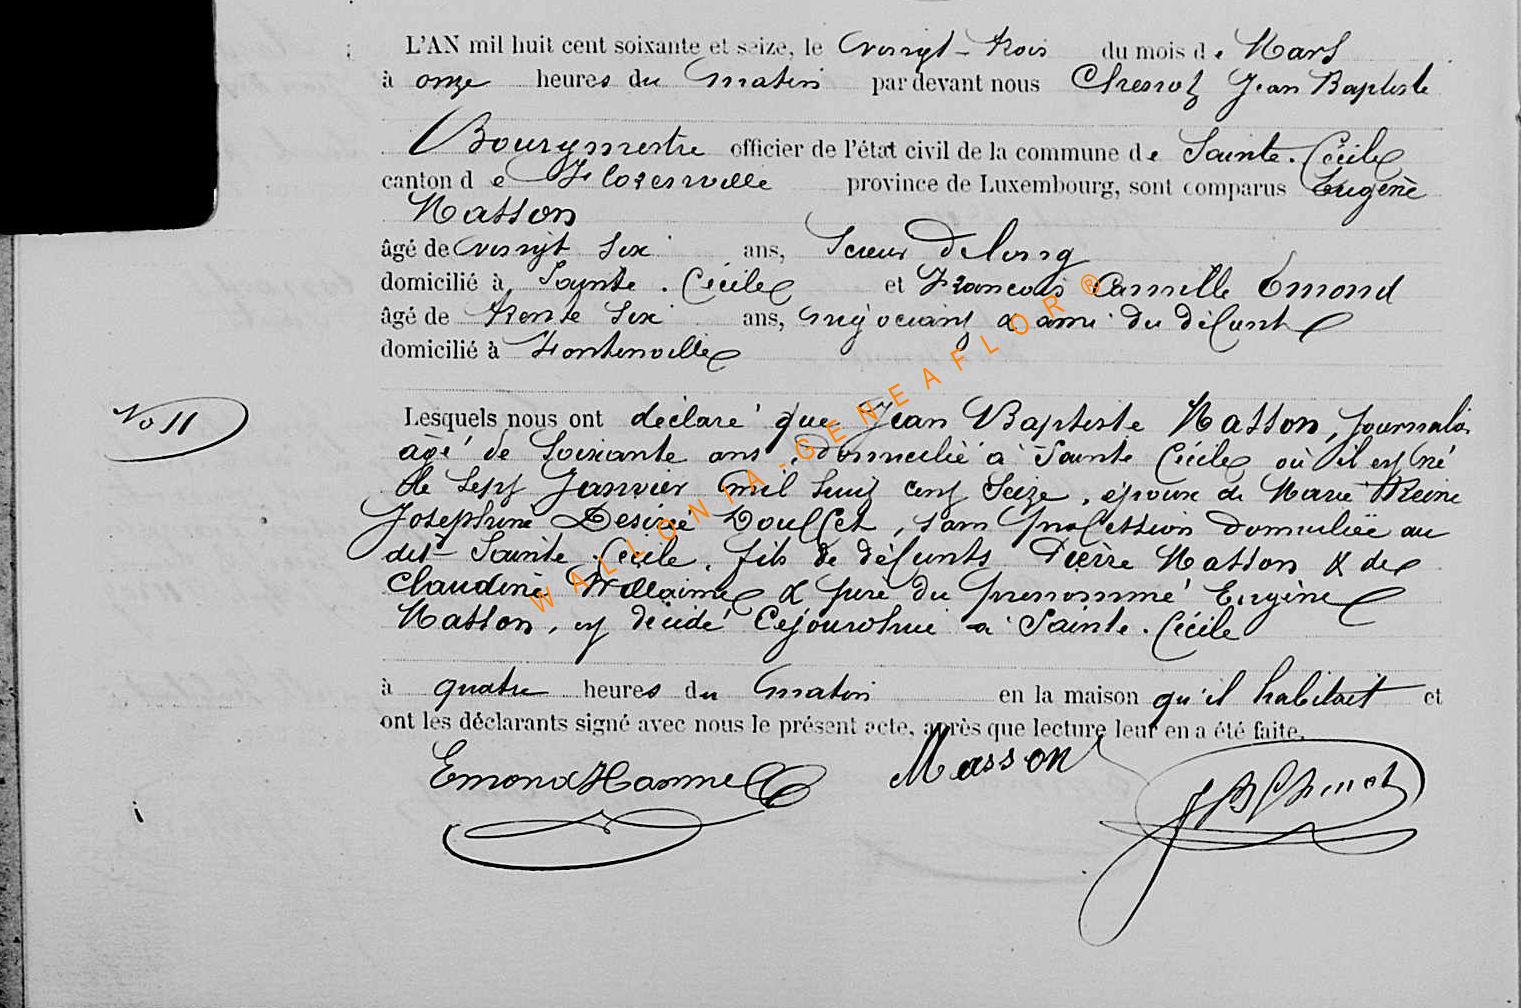 L'AN mil huit cent soixante et seize, le vingt-trois du mois de Mars
à onze heures du matin par devant nous Jean Baptiste
Bourgmestre officier de l'état civil de la commune de Sainte-Cécile
canton de Florenville province de Luxembourg, sont comparus Eugène
Masson
âgé de vingt six ans, Scieur de long
domicilié à Sainte-Cécile et François Camille Emond
âgé de trente six ans, négociant & ami du défunt
domicilié à Fontenoille
No 11
Lesquels nous ont déclaré que Jean Baptiste Masson, journalier
âgé de soixante ans, domicilié à Sainte Cécile où il est né
le sept Janvier mil huit cent seize, époux de Marie Reine
Joséphine Desirée Doulcet, sans profession domiciliée au
dit Sainte Cécile, fils de défunts Pierre Masson & de
Claudine Willaime & père du prénommé Eugène
Masson, est décédé Cejourd'hui à Sainte-Cécile
à quatre heures du matin en la maison qu'il habitait et
ont les déclarants signé avec nous le présent acte, après que lecture leur en a été faite.
Emond Masson
WALLONIA-GENEAFLOR®